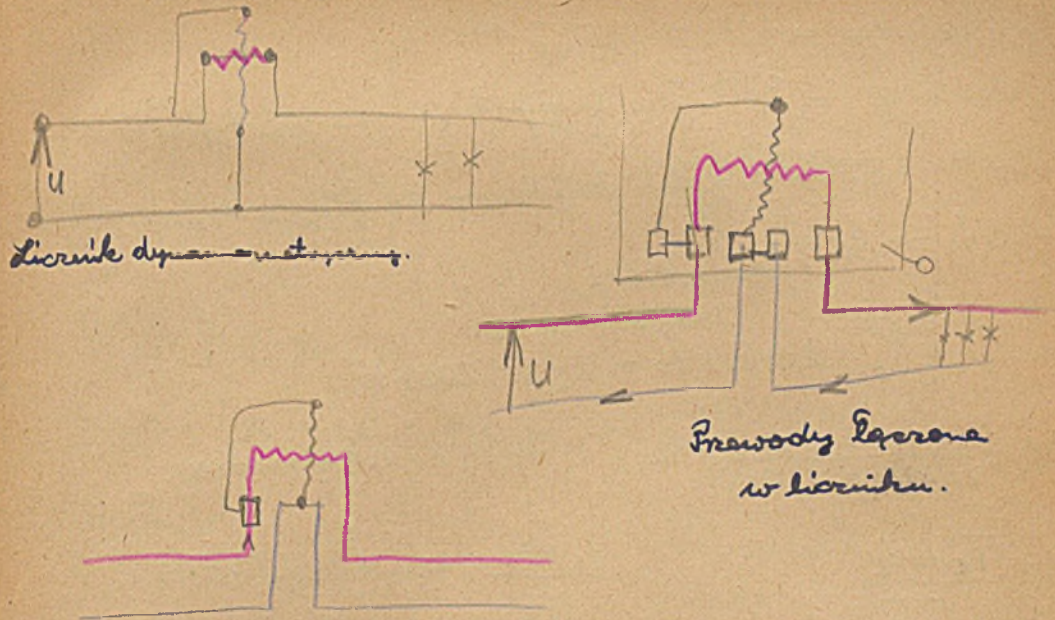 U
Licznik dynamometryczny.
U
Przewody łączone
w liczniku.